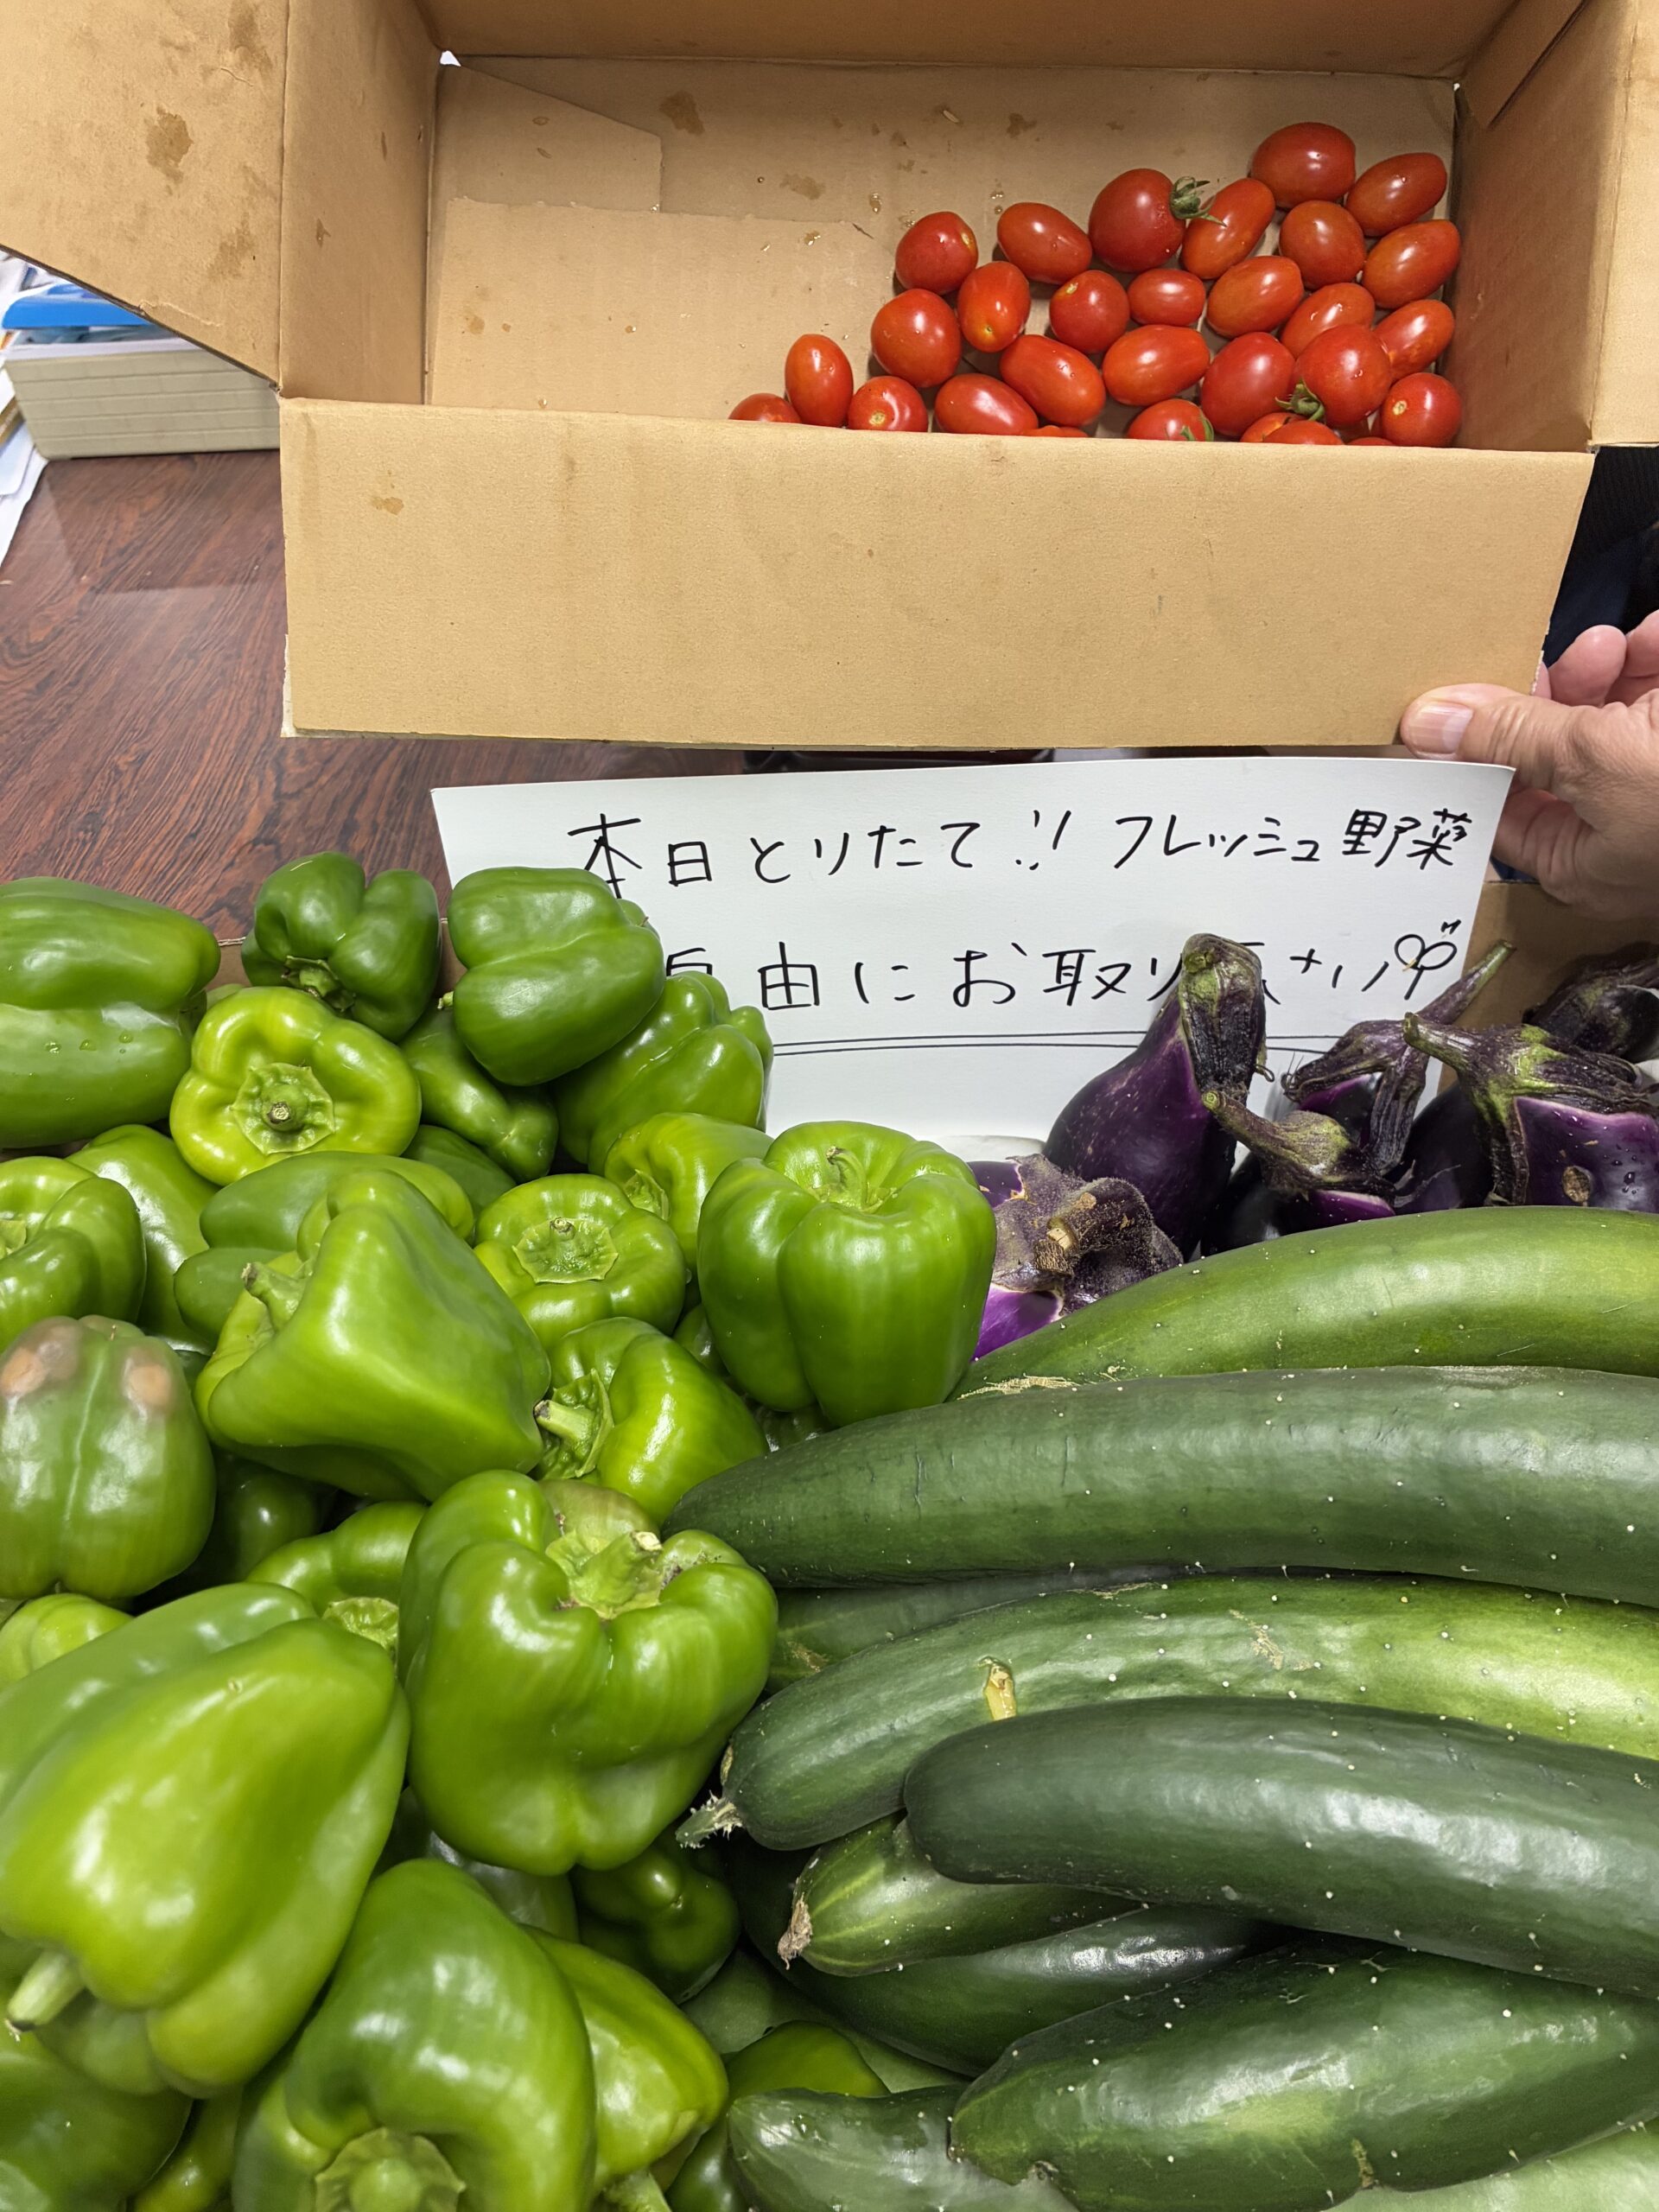 本日とりたて!! フレッシュ野菜
自由にお取り下さい